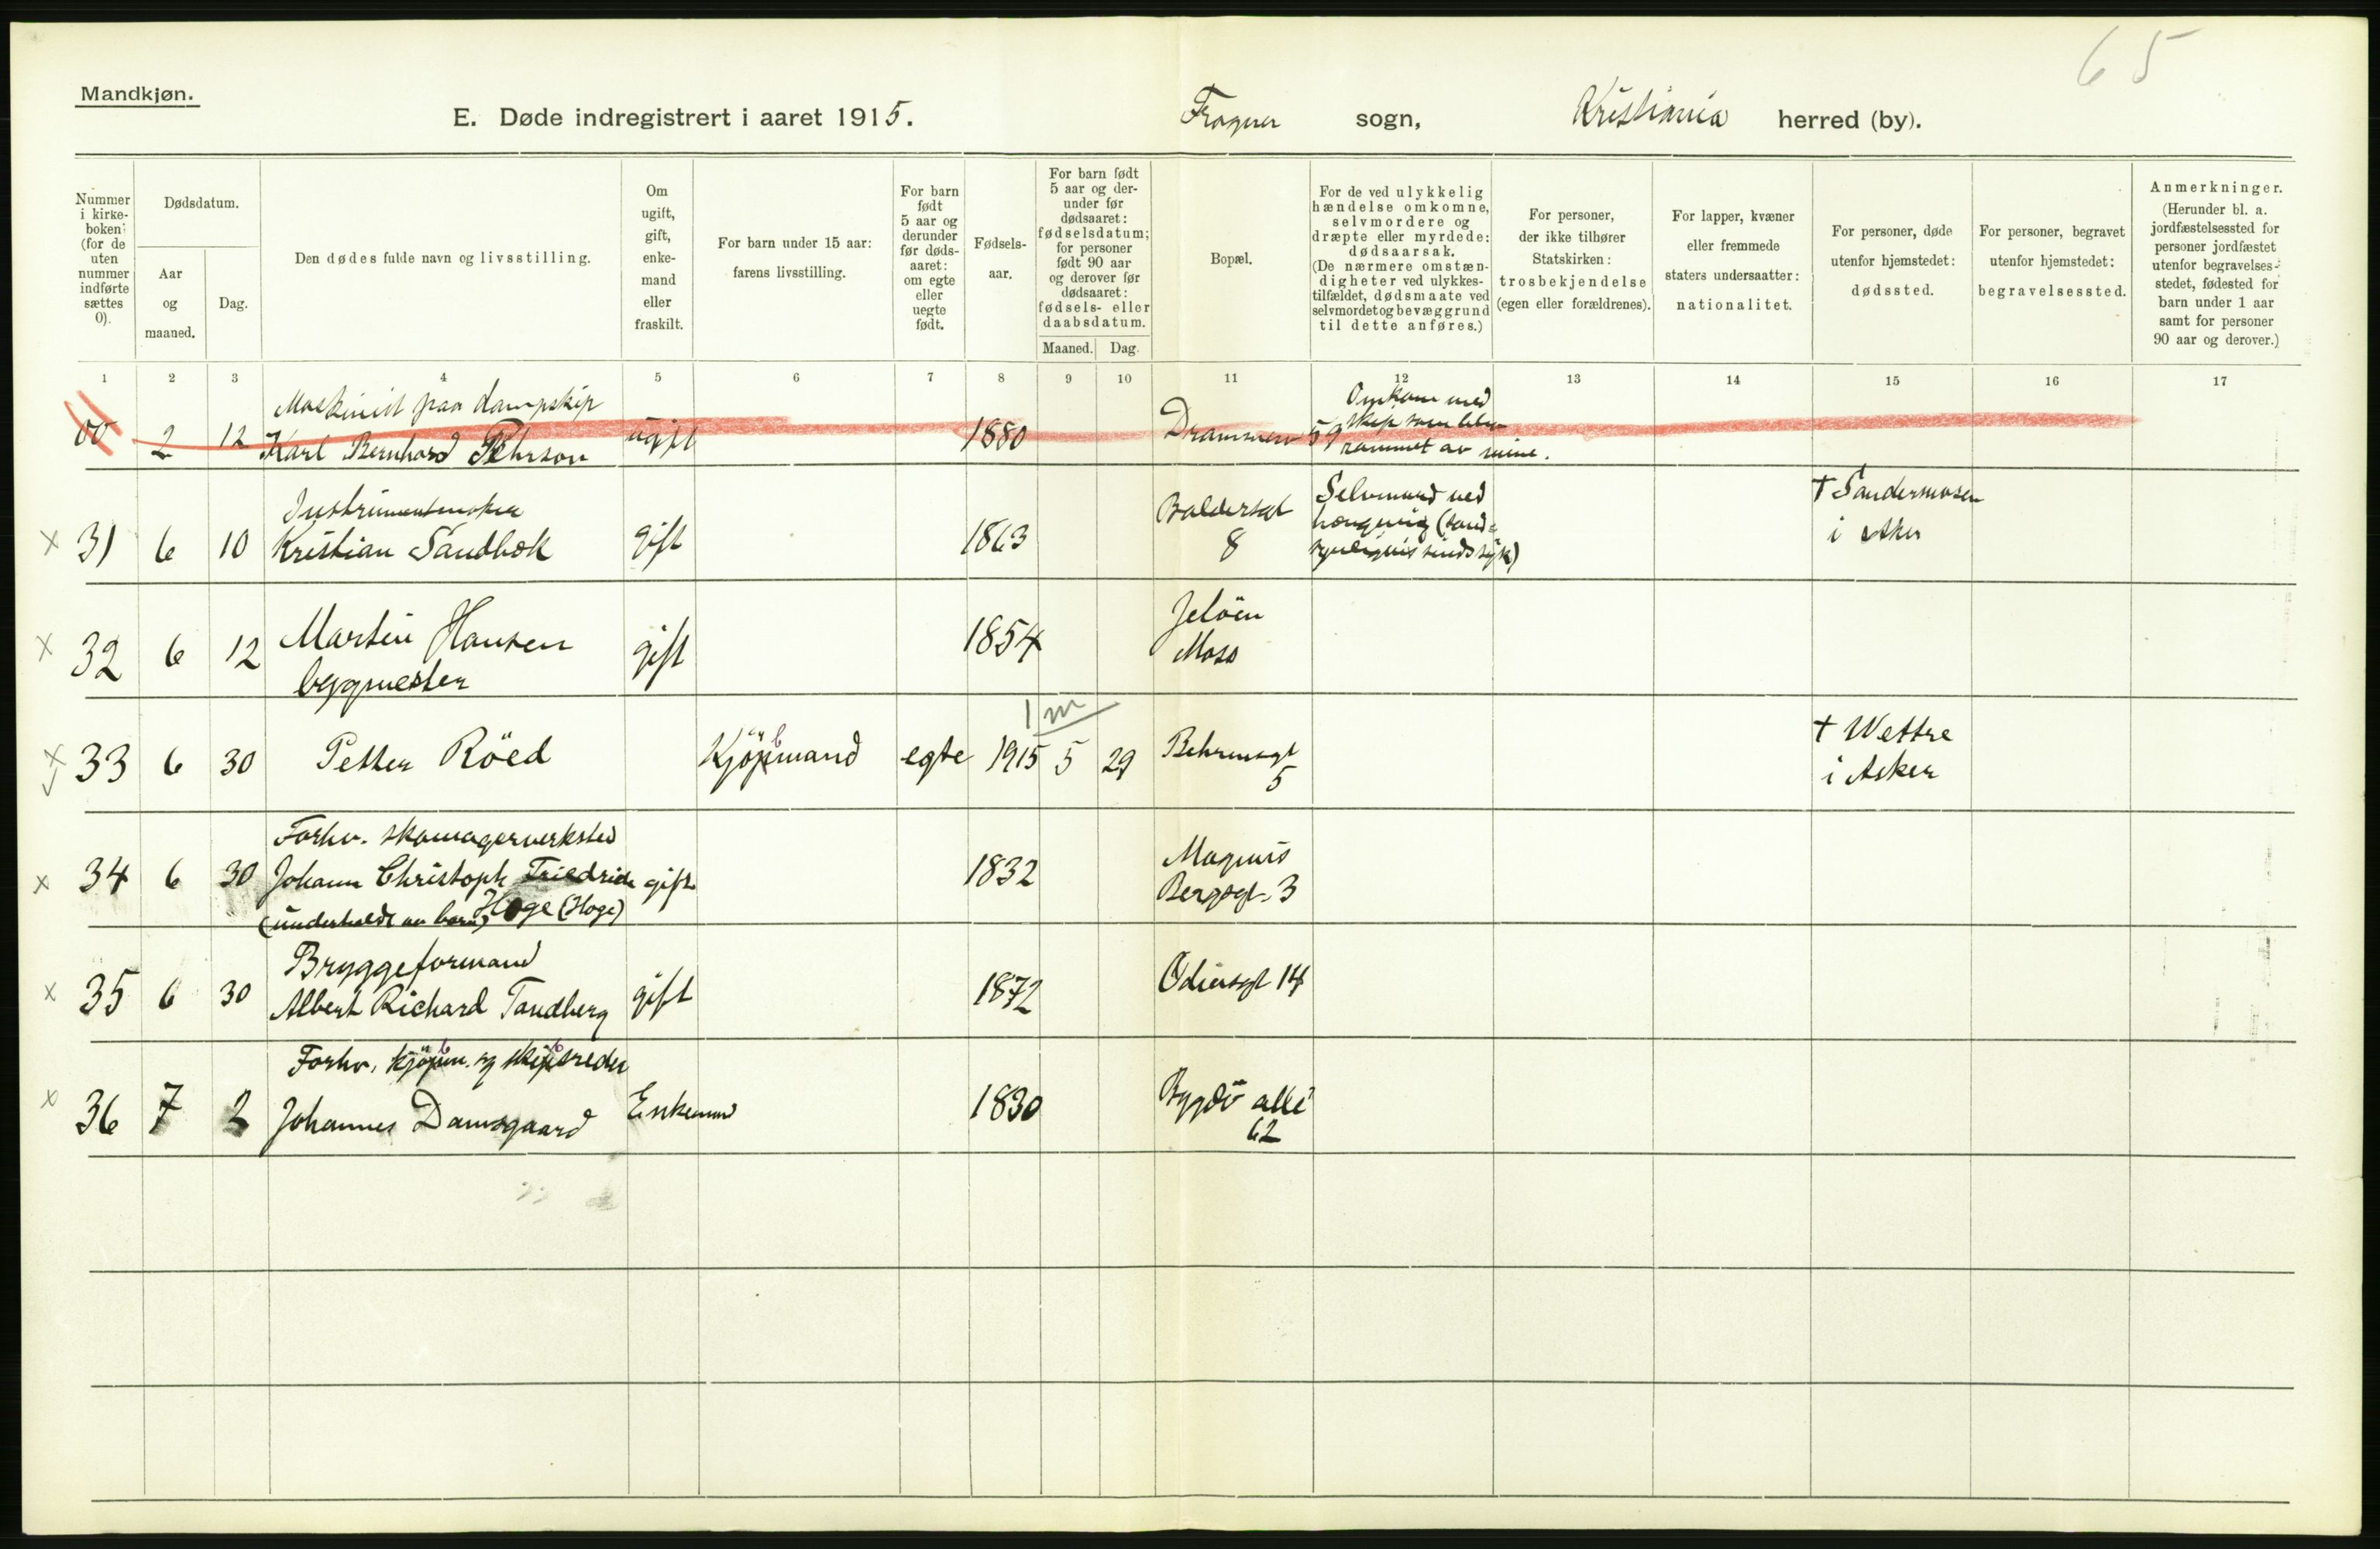 65
Mandkjøn.
E. Døde indregistrert i aaret 1915. Frogner sogn, Kristiania herred (by).
Nummer i kirke- boken: (for de uten nummer indførte sættes 0).
Dødsdatum.
Aar og maaned.
Dag.
Den dødes fulde navn og livsstilling.
Om ugift, gift, enke- mand eller fraskilt.
For barn under 15 aar: farens livsstilling.
For barn født 5 aar og derunder før døds- aaret: om egte eller uegte født.
Fødsels- aar.
For barn født 5 aar og der- under før dødsaaret: fødselsdatum; for personer født 90 aar og derover før dødsaaret: fødsels- eller daabsdatum.
Maaned. Dag.
Bopæl.
For de ved ulykkelig hændelse omkomne, selvmordere og dræpte eller myrdede: dødsaarsak. (De nærmere omstæn- digheter ved ulykkes- tilfældet, dødsmaate ved selvmordet og bevæggrund til dette anføres.)
For personer, der ikke tilhører Statskirken: trosbekjendelse (egen eller forældrenes).
For lapper, kvæner eller fremmede staters undersaatter: nationalitet.
For personer, døde utenfor hjemstedet: dødssted.
For personer, begravet utenfor hjemstedet: begravelsessted.
Anmerkninger. (Herunder bl. a. jordfæstelsessted for personer jordfæstet utenfor begravelses- stedet, fødested for barn under 1 aar samt for personer 90 aar og derover.)
1 2 3 4 5 6 7 8 9 10 11 12 13 14 15 16 17
Maskinist paa dampskip
Omkom med
skip som blev
2 12 Karl Bernhard Pehrson ugift 1880 Drammen
rammet av mine.
Instrumentmaker
Baldersgt
Selvmord ved
† Sandermosen
hængning (sand-
x 31 6 10 Kristian Sandbek gift 1863 8
synligvis sindssyk)
i Aker
Martin Hansen
Jelöen
x 32 6 12 gift 1854 Moss
bygmester
1 m
x 33 6 30 Petter Röed Kjöpmand egte 1915 5 29 Behrensgt
5
† Wettre
i Asker
Forhv. skomagerverksted
Magnus
x 34 6 30 Johann Christoph Friedrich gift 1832 Bergsgt. 3
(underholdt av barn) Hoge (Hoge)
Bryggeformand
x 35 6 30 Albert Richard Tandberg gift 1872 Odinsgt 14
Forhv. kjöpm. og skipsreder
x 36 7 2 Johannes Damsgaard Enkemand 1830 Bygdö allé
62